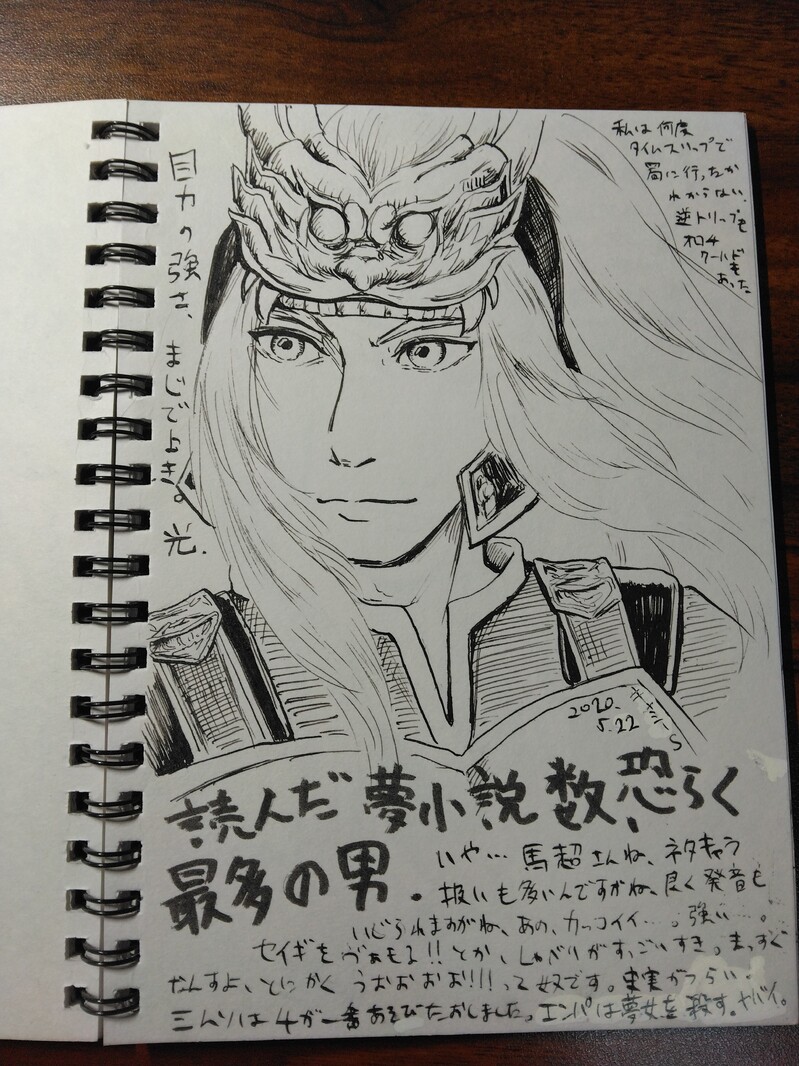 私は何度
タイムスリップで
蜀に行ったか
わからない。
逆トリップも
オロチ
ワールドも
あった
目力の強さ、まじでよき。光.
2020.
5.22
読んだ夢小説数、恐らく
最多の男.
いや… 馬超さんね、ネタキャラ
扱いも多いんですがね、良く発音も
いじられますがね、あの、カッコイイ…。強い…。
セイギをヴぁもる!!とか、しゃべりがすっごいすき。まっすぐ
なんすよ、とにかく うおおおお!!!って奴です。史実がつらい.
三ムソは4が一番あそびたおしました。エンパは夢女を殺す。ヤバイ。